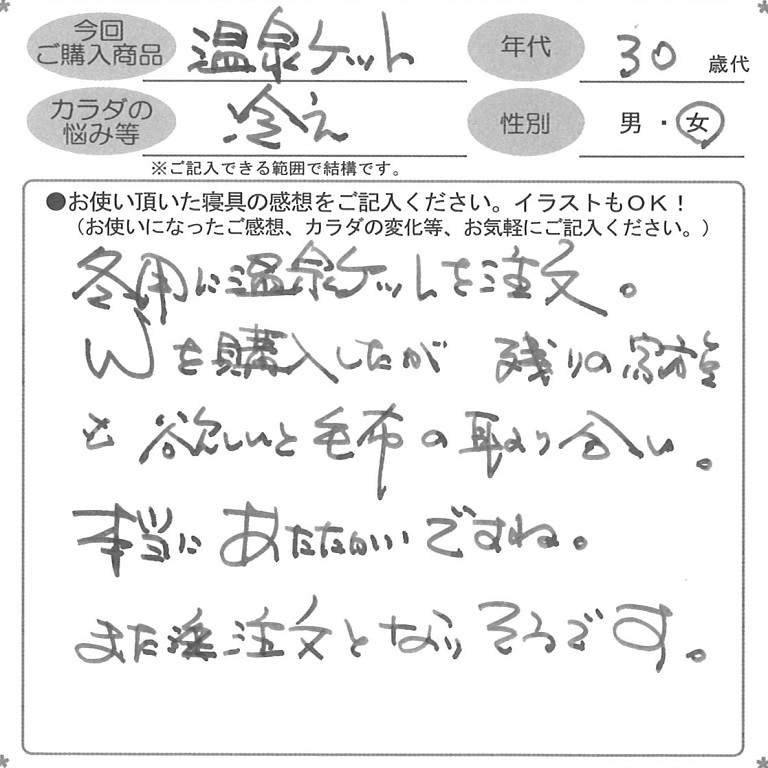 今回
ご購入商品
温泉ケット
年代
30 歳代
カラダの
悩み等
冷え
性別
男・女
※ご記入できる範囲で結構です。
●お使い頂いた寝具の感想をご記入ください。イラストもOK！
（お使いになったご感想、カラダの変化等、お気軽にご記入ください。）
冬用に温泉ケットを注文。
Wを購入したが 残りの家族
も欲しいと毛布の取り合い。
本当にあたたかいですね。
また 注文となりそうです。